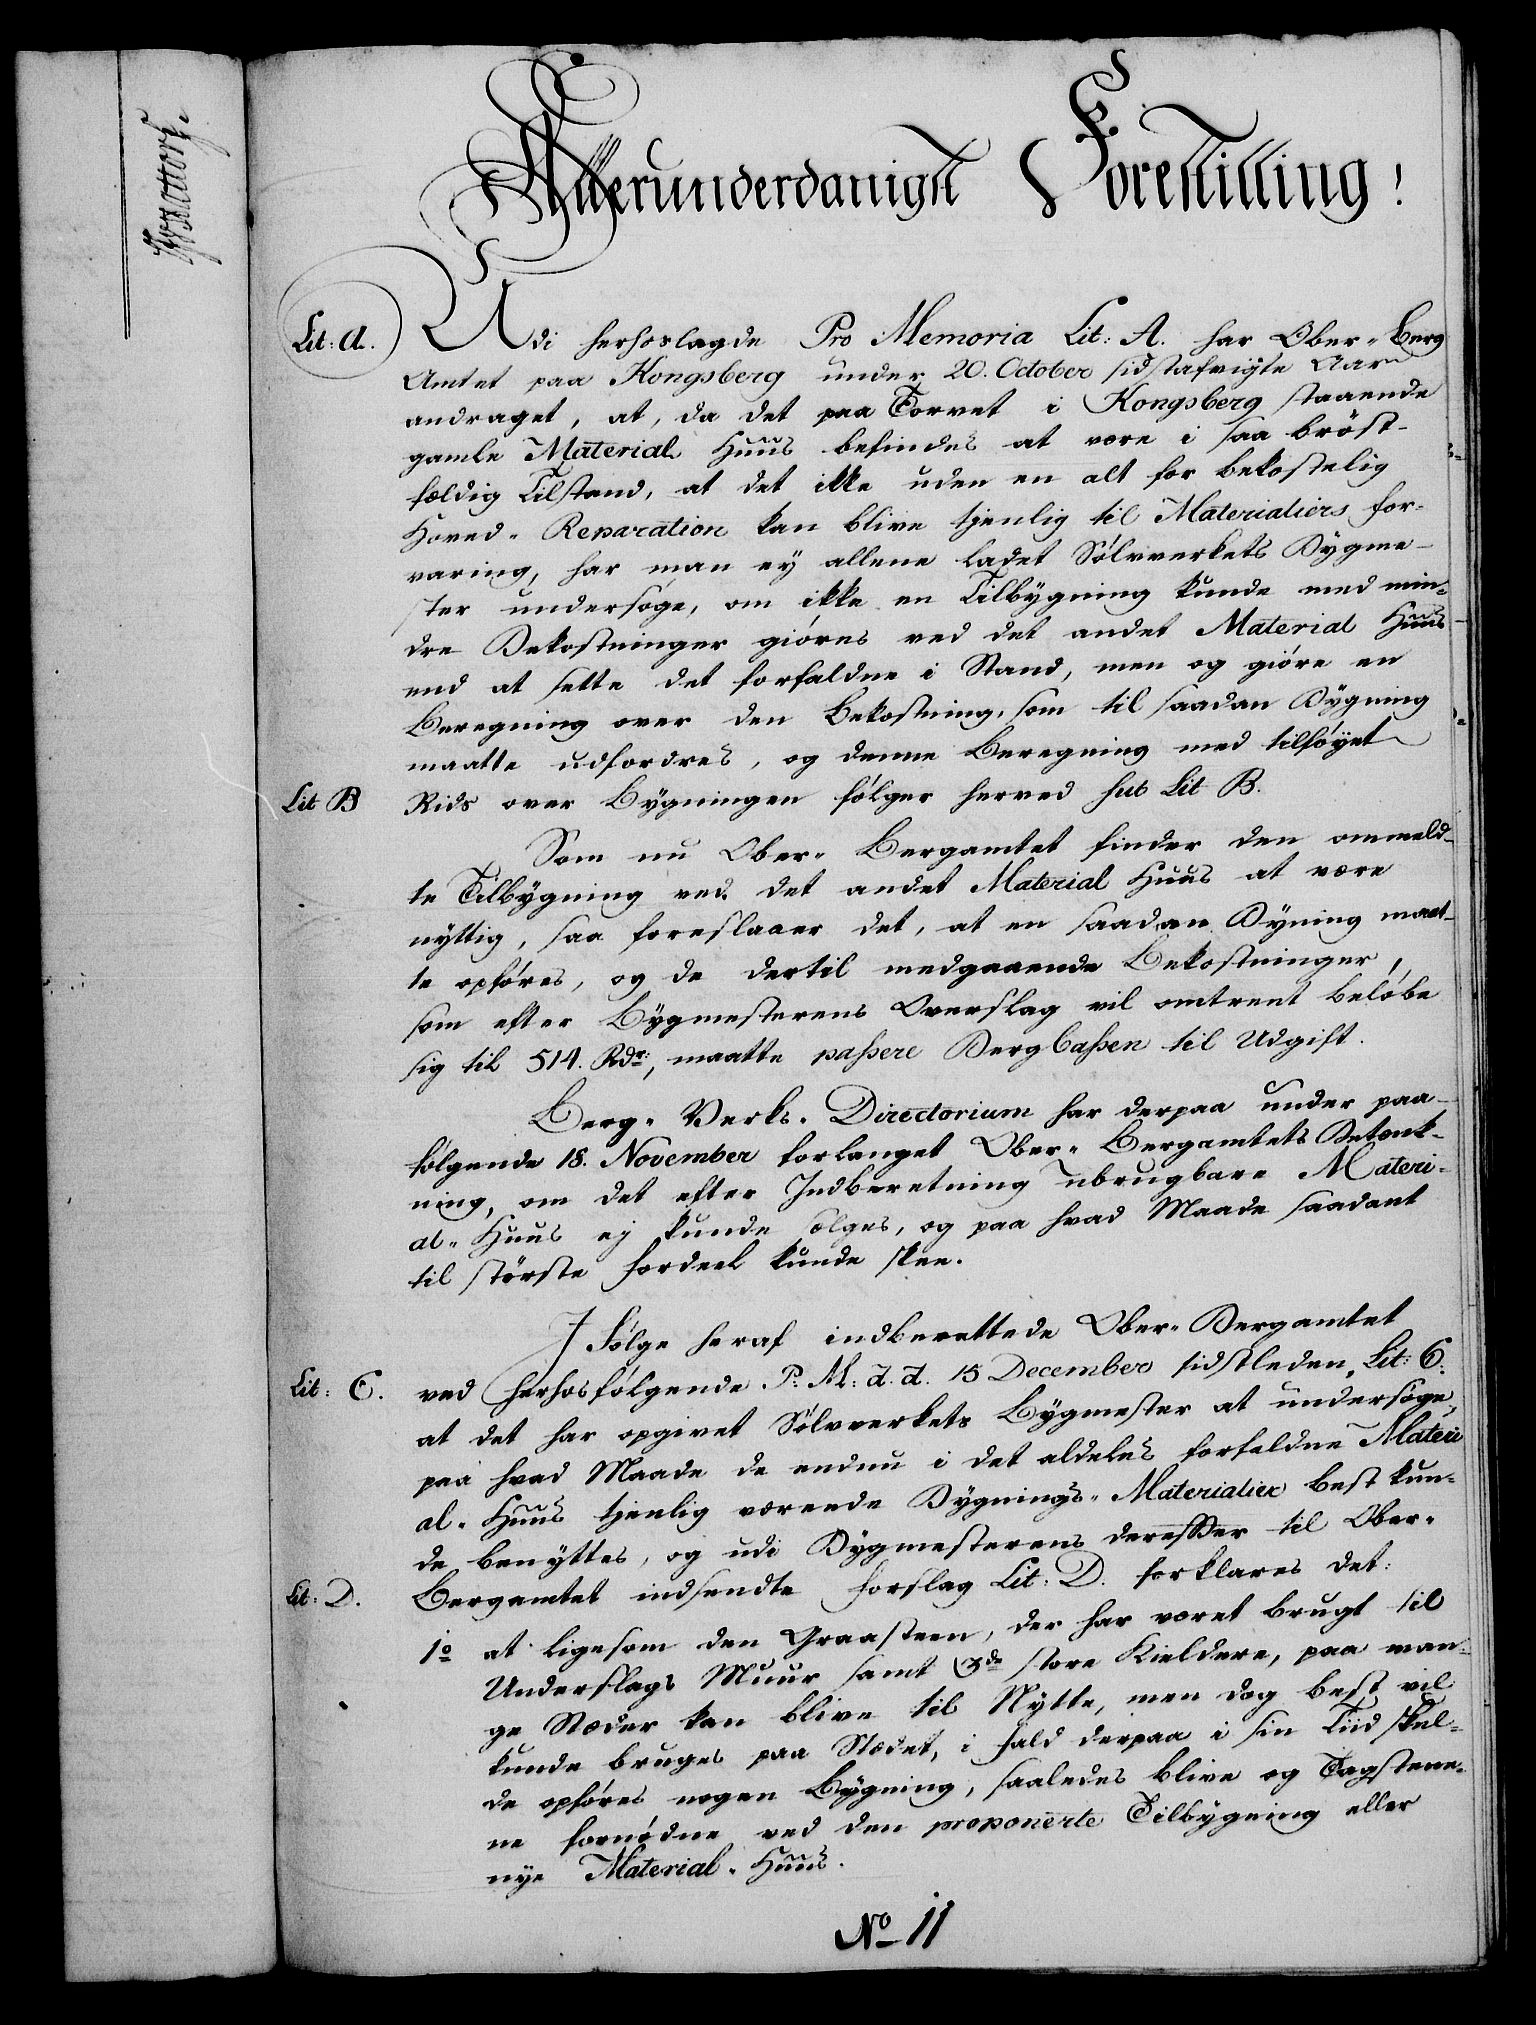 Allerunderdanigst Forestilling!
Lit: A.
Udi herhoslagde Pro Memoria Lit: A. har Ober-Berg
Amtet paa Kongsberg under 20. October sidstafvigte Aar
andraget, at, da det paa Torvet i Kongsberg staaende
gamle Material Huus befindes at være i saa bröst-
fældig Tilstand, at det ikke uden en alt for bekostelig
Hoved-Reparation kan blive tjenlig til Materialiers for-
varing, har man ey allene ladet Sölvverkets Bygme-
ster undersöge, om ikke en Tilbygning kunde med min-
dre Bekostninger giöres ved det andet Material Huus
end at sette det forfaldne i Stand, men og giöre en
Beregning over den Bekostning, som til saadan Bygning
maatte udfordres, og denne Beregning med tilföyet
Lit B
Rids over Bygningen fölger herved sub Lit B.
Som nu Ober-Bergamtet finder den ommeld-
te Tilbygning ved det andet Material Huus at være
nyttig, saa foreslaaer det, at en saadan Byning maat-
te opföres, og de dertil medgaaende Bekostninger,
som efter Bygmesterens Overslag vil omtrent belöbe
sig til 514. Rdr:, maatte passere BergCassen til Udgift.
Berg-Verks-Directorium har derpaa under paa-
fölgende 18. November forlanget Ober-Bergamtets Betænk-
ning, om det efter Indberetning ubrugbare Materi-
al-Huus ej kunde sælges, og paa hvad Maade saadant
til störste Fordeel kunde skee.
I Fölge heraf indberettede Ober-Bergamtet
Lit: C.
ved herhosfölgende P: M: d. d. 15 December sidstleden, Lit: C.
at det har opgivet Sölvverkets Bygmester at undersöge,
paa hvad Maade de endnu i det aldeles forfaldne Materi
al-Huus tjenlig værende Bygnings-Materialier best kun-
de benyttes, og udi Bygmesterens derefter til Ober-
Lit: D.
Bergamtet indsendte Forslag Lit: D. forklares det:
1o at ligesom den Graasteen, der har været brugt til
Underslags Muur samt 3de store Kieldere, paa man-
ge Stæder kan blive til Nytte, men dog best vil
kunde bruges paa Stædet, i Fald derpaa i sin Tiid skul-
de opföres nogen Bygning, saaledes blive og Tagstene-
ne fornödne ved den proponerte Tilbygning eller
nye Material-Huus.
No 11